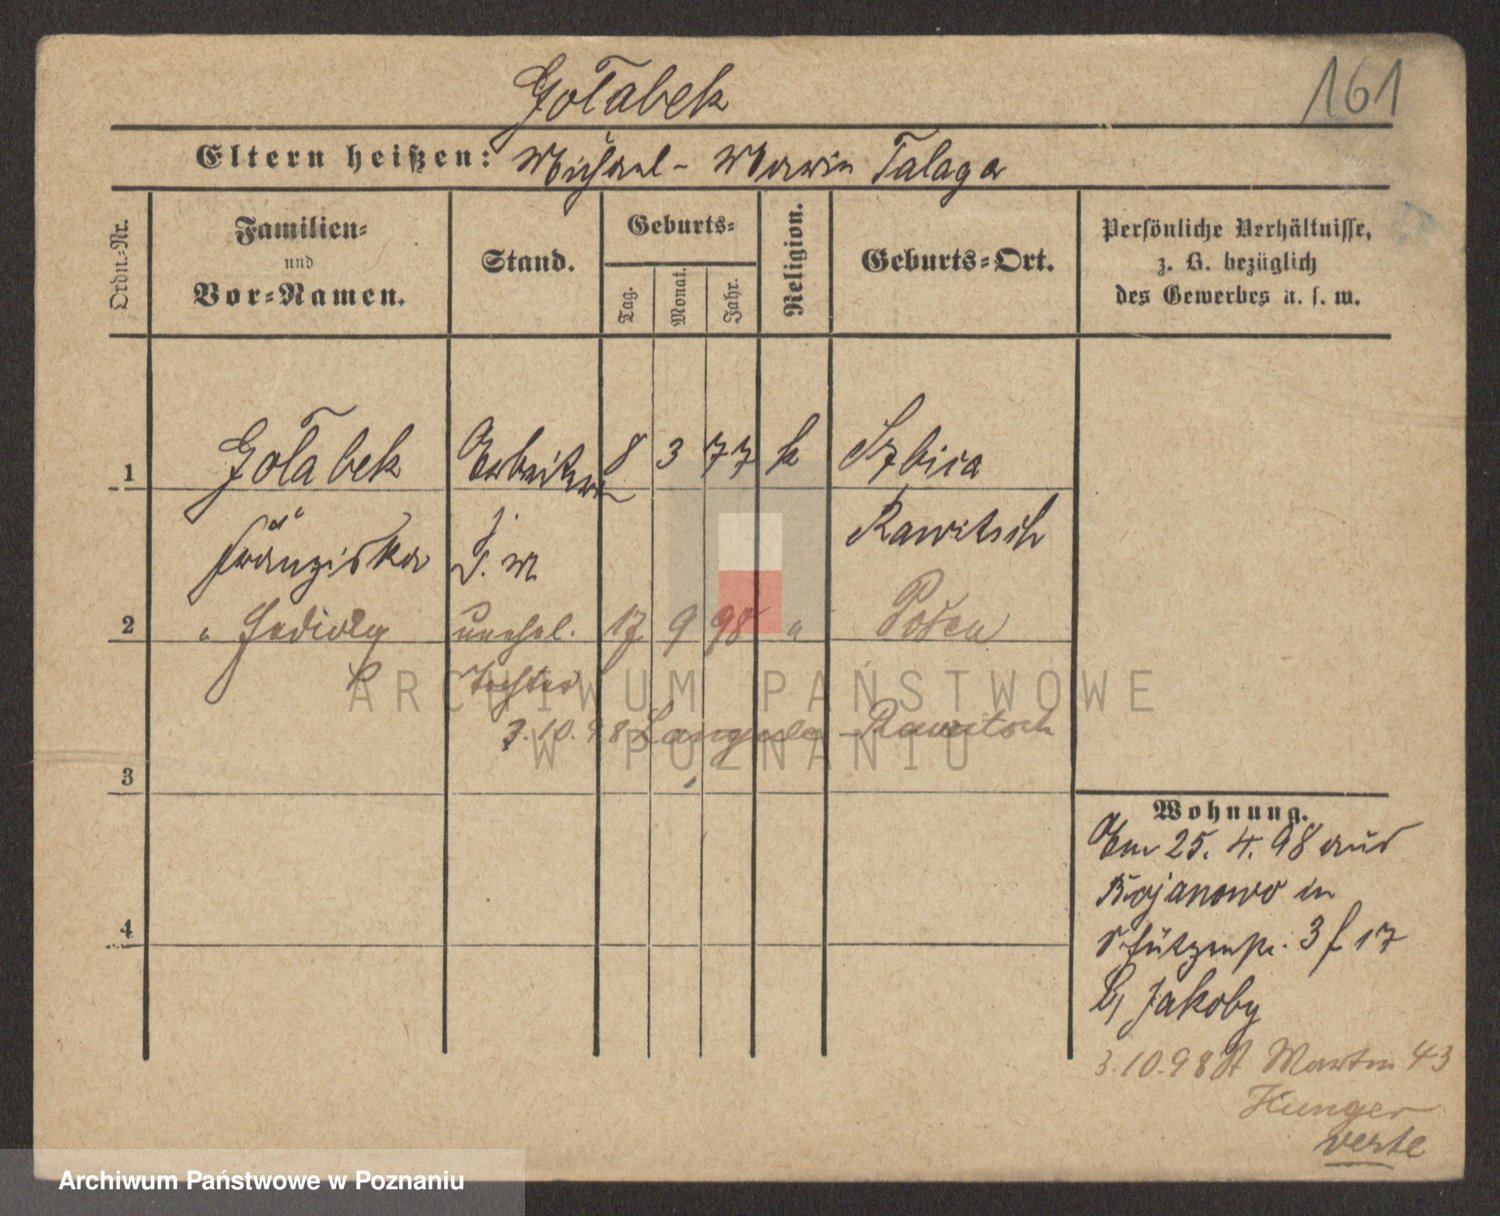 Gołabek
161
Eltern heißen: Michael - Maria Talaga
Ordn.-Nr.
Familien-
und
Vor-Namen.
Stand.
Geburts-
Tag.
Monat.
Jahr.
Religion.
Geburts-Ort.
Persönliche Verhältnisse,
z. B. bezüglich
des Gewerbes u. s. w.
1 Gołabek Arbeiterin 8 3 77 k
Franziska Rawitsch
2 " Hedwig unehel. 17 9 98 " Posen
Tochter
3.10.98 - Rawitsch
3
4
Wohnung.
Am 25. 4. 98 aus
Bojanowo in
Schützenstr. 3 f 17
b/ Jakoby
3.10.98 St Martin 43
Hunger
verte
ARCHIWUM PAŃSTWOWE
W POZNANIU
Archiwum Państwowe w Poznaniu